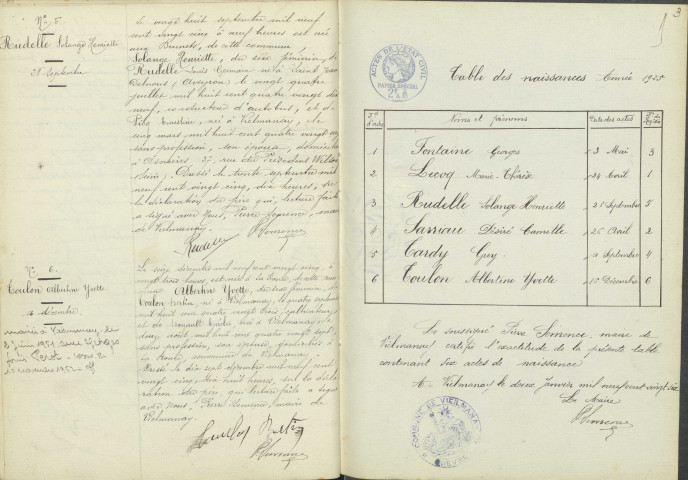 N° 5
Rudelle Solange Henriette
28 Septembre
Le vingt huit septembre mil neuf
cent vingt cinq à neuf heures est né
aux Brunets, de cette commune
Solange Henriette, du sexe féminin, de
Rudelle Louis Germain né à Saint
(Aveyron) le vingt quatre
juillet mil huit cent quatre vingt dix
neuf, conducteur d'autobus, et de
née à Vielmanay, le
cinq mars mil huit cent quatre vingt
sans profession, son épouse, domiciliés
à Asnières 27 rue du Président Wilson
Dressé le trente septembre mil
neuf cent vingt cinq, dix heures, sur
la déclaration du père qui, lecture faite
a signé avec Nous, Pierre Simonce, maire
de Vielmanay.
Rudelle Simonce
N° 6
Toulon Albertine Yvette
Décembre
mariée à Vielmanay, le
Le seize décembre mil neuf cent vingt cinq, à
vingt trois heures, est née à la
Albertine Yvette, du sexe féminin, de
Toulon né à Vielmanay, le quatre septembre
mil huit cent quatre vingt trois, cultivateur,
et de née à Vielmanay, le
août mil huit cent quatre vingt
sans profession, son épouse, domiciliés à
commune de Vielmanay.
Dressé le dix sept décembre mil neuf cent
vingt cinq, heures, sur la décla-
ration du père qui lecture faite a signé
avec Nous, Pierre Simonce, maire de
Vielmanay.
Simonce
3
ACTES DE L'ETAT CIVIL
PAPIER SPÉCIAL
Table des naissances Année 1925
Nos d'ordre Noms et prénoms Date des actes
1 Fontaine Georges 3 Mai 3
2 Lecoq Marie-Thérèse 24 Avril 1
3 Rudelle Solange Henriette 28 Septembre 5
4 Sarriau Désiré Camille 26 Avril 2
5 Tardy Guy Septembre 4
6 Toulon Albertine Yvette Décembre 6
Le soussigné Pierre Simonce, maire de
Vielmanay certifie l'exactitude de la présente table
contenant six actes de naissance
A Vielmanay, le deux Janvier mil neuf cent vingt six
Le Maire
Simonce
COMMUNE DE VIELMANAY
NIÈVRE